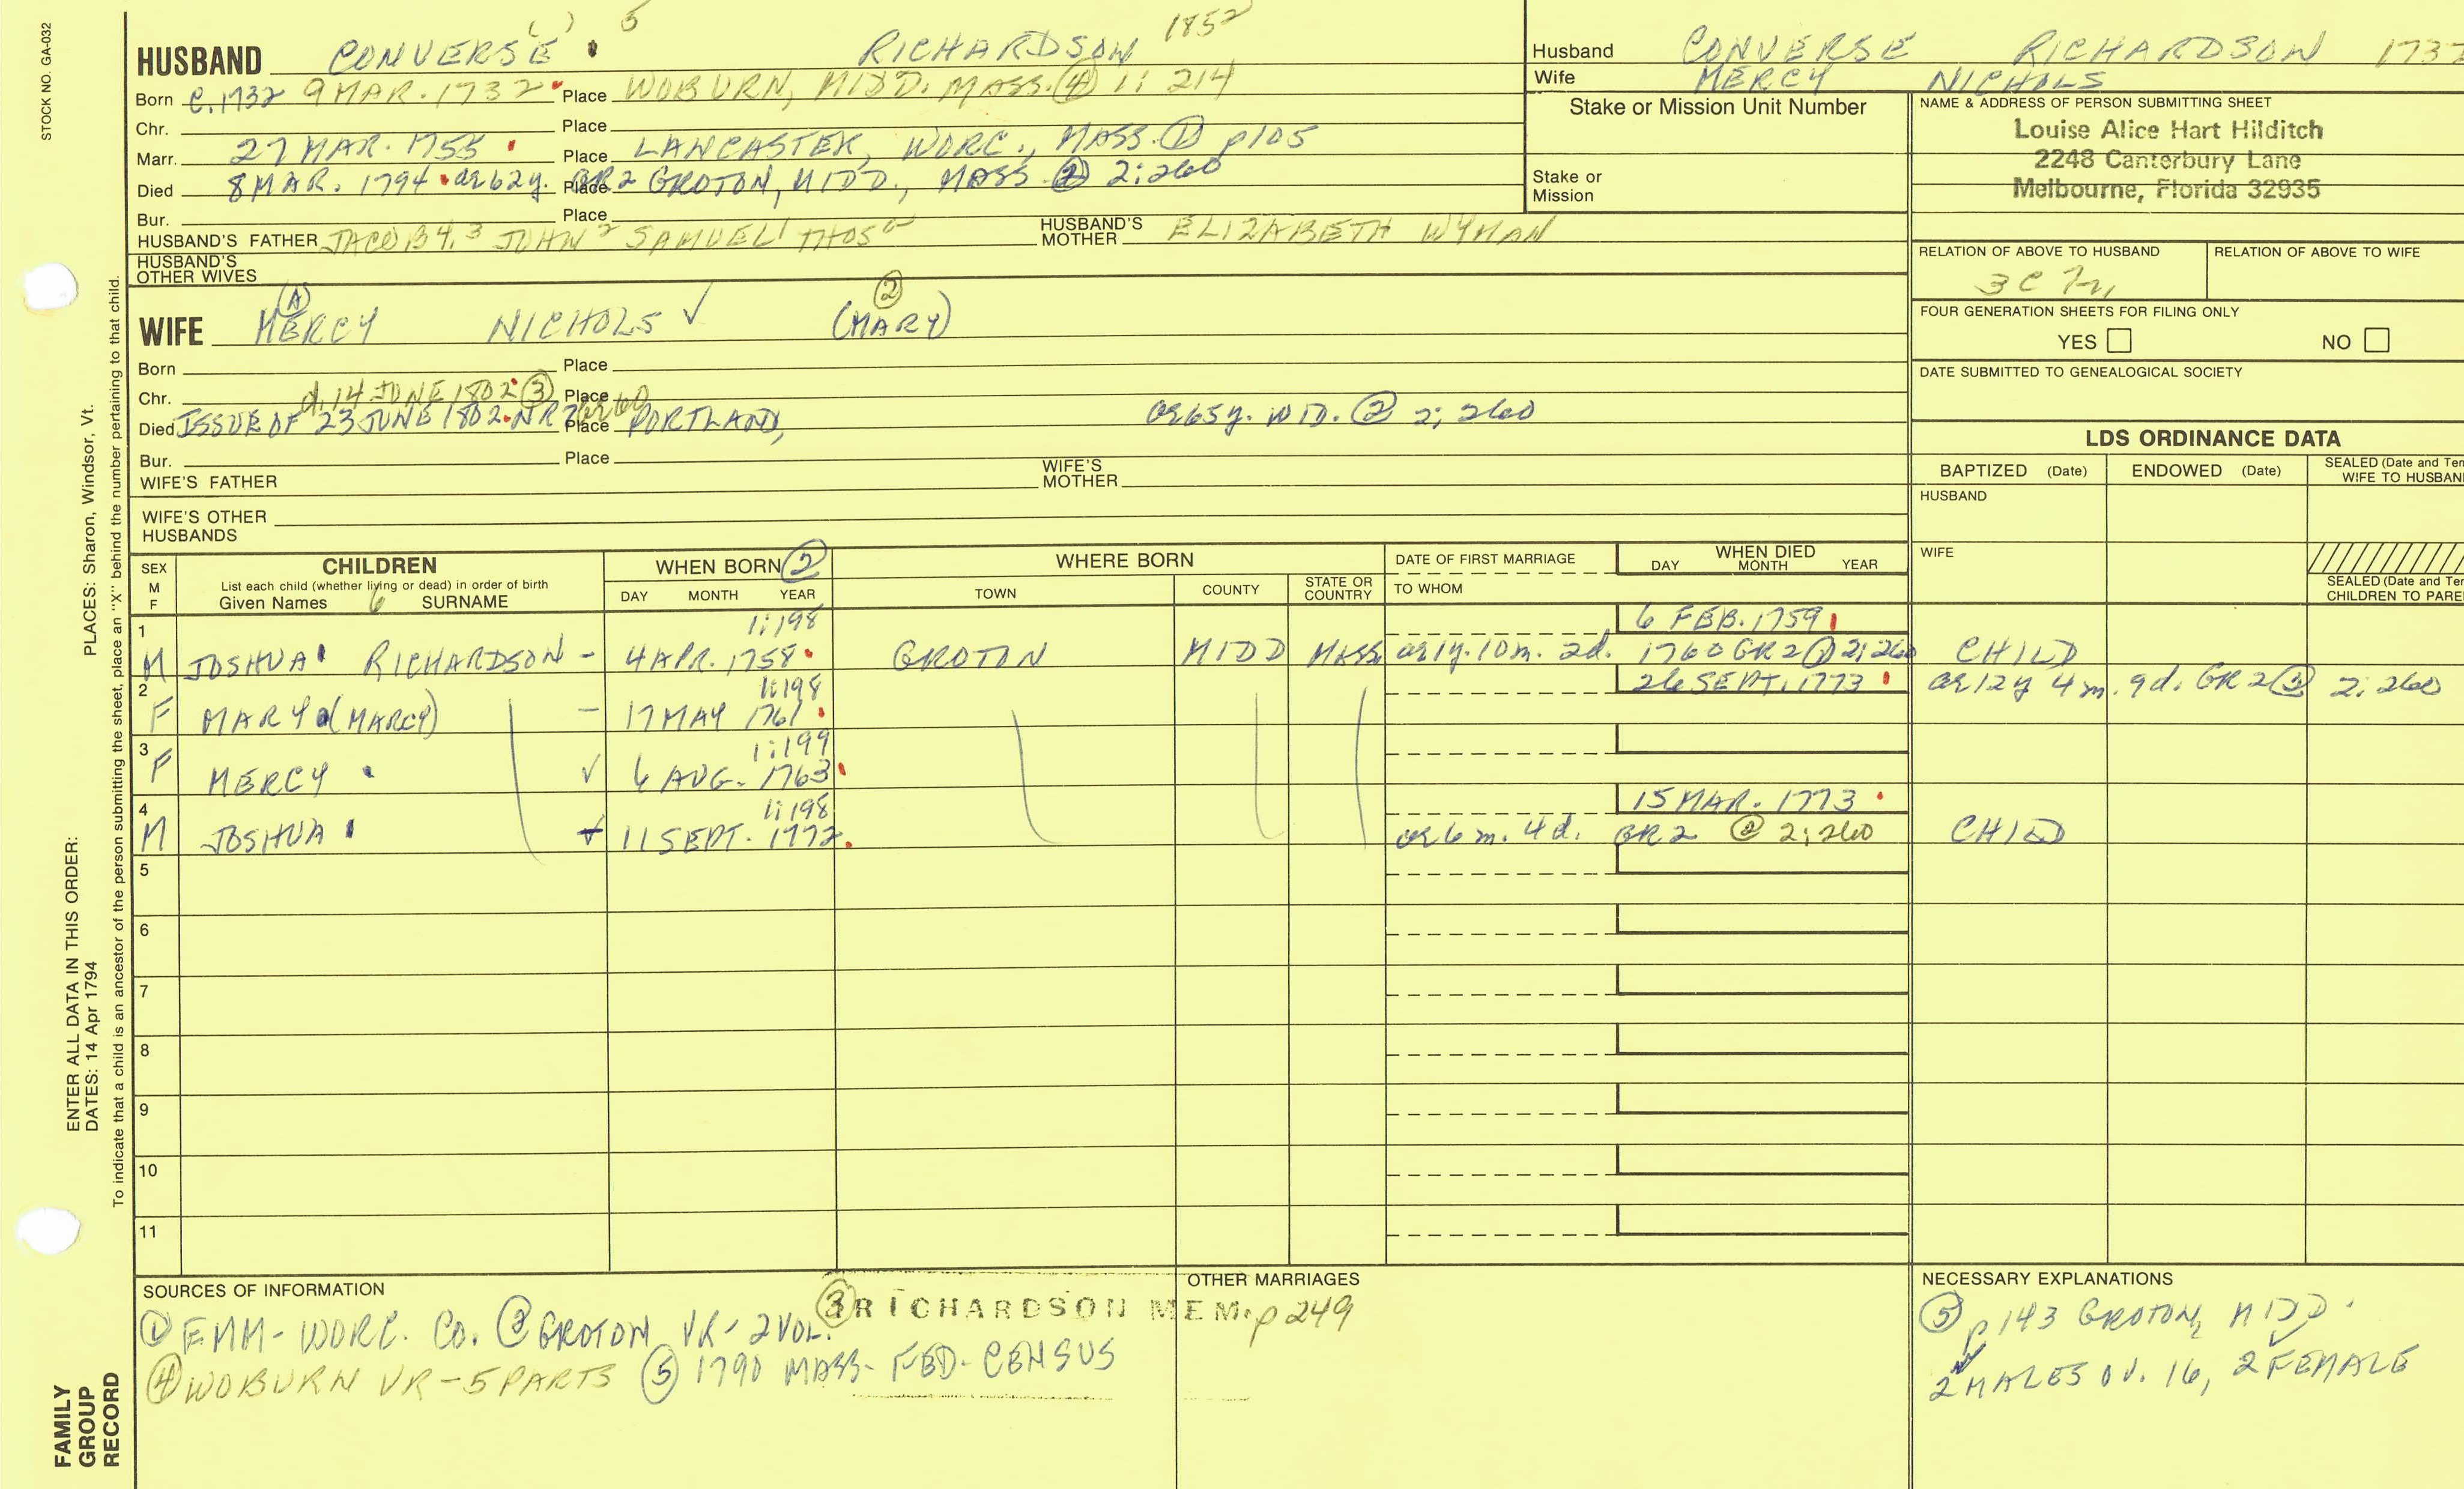 STOCK NO. GA-032
( ) 5
1852
HUSBAND CONVERSE RICHARDSON
Born C.1732 9 MAR. 1732 Place WOBURN, MIDD. MASS. (4) 1: 214
Chr. Place
Marr. 27 MAR. 1755 Place LANCASTER, WORC., MASS. (1) p105
Died 8 MAR. 1794 ae 62y. Place GR2 GROTON, MIDD., MASS (2) 2:260
Bur. Place
HUSBAND'S FATHER JACOB 4, 3 JOHN 2 SAMUEL 1 THOS 0
HUSBAND'S MOTHER ELIZABETH WYMAN
HUSBAND'S OTHER WIVES
(A) (2)
WIFE MERCY NICHOLS ✓ (MARY)
Born Place
Chr. d. 14 JUNE 1802 (3) Place
Died ISSUE OF 23 JUNE 1802 NR 2 ae 60 Place PORTLAND, ae 65y. WID. (2) 2; 260
Bur. Place
WIFE'S FATHER
WIFE'S MOTHER
WIFE'S OTHER HUSBANDS
Husband CONVERSE RICHARDSON 1732
Wife MERCY NICHOLS
Stake or Mission Unit Number
Stake or Mission
NAME & ADDRESS OF PERSON SUBMITTING SHEET
Louise Alice Hart Hilditch
2248 Canterbury Lane
Melbourne, Florida 32935
RELATION OF ABOVE TO HUSBAND
RELATION OF ABOVE TO WIFE
3C 7r
FOUR GENERATION SHEETS FOR FILING ONLY
YES NO
DATE SUBMITTED TO GENEALOGICAL SOCIETY
LDS ORDINANCE DATA
BAPTIZED (Date) ENDOWED (Date) SEALED (Date and Tem
WIFE TO HUSBAN
HUSBAND
WIFE
SEALED (Date and Tem
CHILDREN TO PARE
SEX M F
CHILDREN
List each child (whether living or dead) in order of birth
Given Names 6 SURNAME
WHEN BORN (2)
DAY MONTH YEAR
WHERE BORN
TOWN COUNTY STATE OR COUNTRY
DATE OF FIRST MARRIAGE
TO WHOM
WHEN DIED
DAY MONTH YEAR
1 1:198 6 FEB. 1759
M JOSHUA RICHARDSON - 4 APR. 1758 GROTON MIDD MASS ae 1y. 10m. 2d. 1760 GR2 (2) 2; 260 CHILD
2 1:198 26 SEPT. 1773 ae 12y 4m. 9d. GR2 (2) 2: 260
F MARY (MARCY) - 17 MAY 1761
3 1:199
F MERCY ✓ 6 AUG. 1763
4 1:198 15 MAR. 1773
M JOSHUA 11 SEPT. 1772 ae 6m. 4d. GR2 (2) 2; 260 CHILD
5
6
7
8
9
10
11
SOURCES OF INFORMATION
(1) EMM- WORC. CO. (2) GROTON VR- 2 VOL. (3) RICHARDSON MEM. p 249
(4) WOBURN VR-5 PARTS (5) 1790 MASS- FED- CENSUS
OTHER MARRIAGES
NECESSARY EXPLANATIONS
(5) p 143 GROTON, MIDD.
2 MALES OV. 16, 2 FEMALE
ENTER ALL DATA IN THIS ORDER:
DATES: 14 Apr 1794
PLACES: Sharon, Windsor, Vt.
To indicate that a child is an ancestor of the person submitting the sheet, place an "X" behind the number pertaining to that child.
FAMILY GROUP RECORD